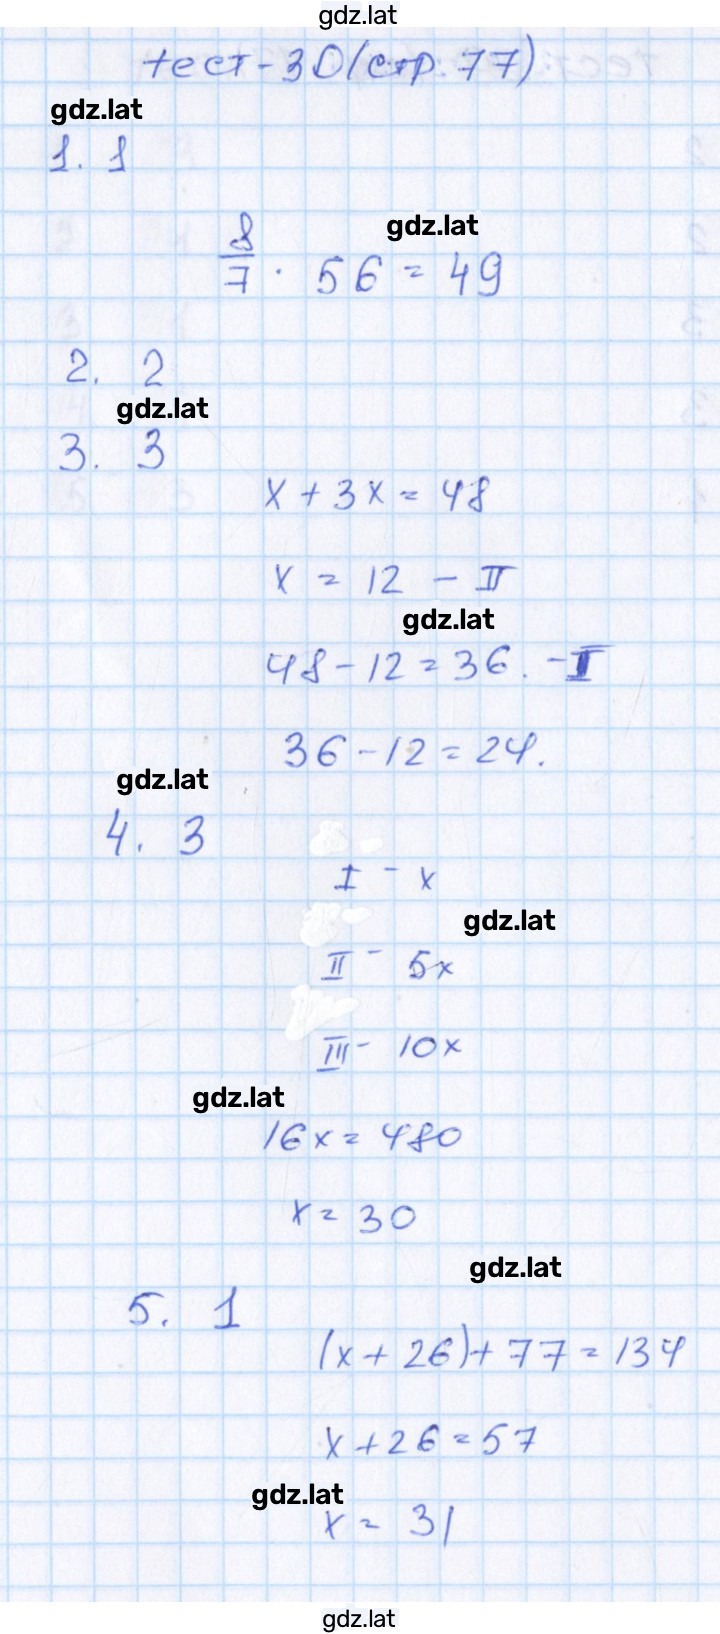 gdz.lat
тест-30 (стр. 77)
gdz.lat
1. 1
gdz.lat
8/7 · 56 = 49
2. 2
gdz.lat
3. 3
x + 3x = 48
x = 12 - II
gdz.lat
48 - 12 = 36. - I
36 - 12 = 24.
gdz.lat
4. 3
I - x
gdz.lat
II - 5x
III - 10x
gdz.lat
16x = 480
x = 30
gdz.lat
5. 1
(x + 26) + 77 = 134
x + 26 = 57
gdz.lat
x = 31
gdz.lat